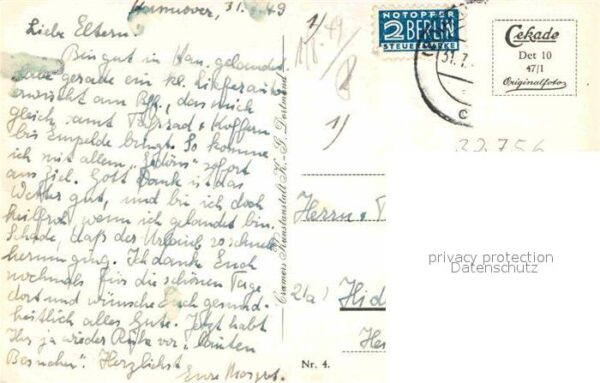 Hannover, 31.7.49
Liebe Eltern!
Bin gut in Han. gelandet
habe gerade ein kl. Lieferauto
erwischt am Bhf., das mich
gleich samt Fahrrad + Koffern
bis Empelde bringt. So komme
ich mit allem sofort
ans Ziel. Gott Dank ist das
Wetter gut, und bin ich doch
heilfroh, wenn ich gelandet bin.
Schade, daß der Urlaub so schnell
herum ging. Ich danke Euch
nochmals für die schönen Tage
dort und wünsche Euch gesund-
heitlich alles Gute. Jetzt habt
Ihr ja wieder Ruhe vor lauten
Besuchen. Herzlichst
Eure Margret.
Cramers Kunstanstalt K.-G. Dortmund
1)
1)
NOTOPFER
2 BERLIN
STEUERMARKE
31.7.
Cekade
Det 10
47/1
Originalfoto
32756
Herrn u.
21a)
Nr. 4.
privacy protection
Datenschutz